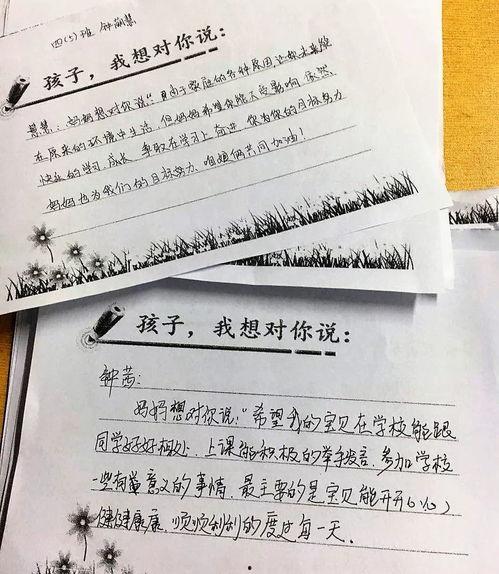 四(5)班 钟萌慧
孩子，我想对你说：
慧慧：妈妈想对你说："由于家庭的各种原因让你未能
在原来的环境中生活，但妈妈希望你能不受影响，依然
快乐的学习、成长，争取在学习上奋进，你为你的目标努力
妈妈也为我们的目标努力，咱娘俩共同加油！
孩子，我想对你说：
钟茜：
妈妈想对你说，"希望我的宝贝在学校能跟
同学好好相处，上课能积极的举手发言，参加学校
一些有意义的事情，最主要的是宝贝能开开心心
健健康康，顺顺利利的度过每一天。